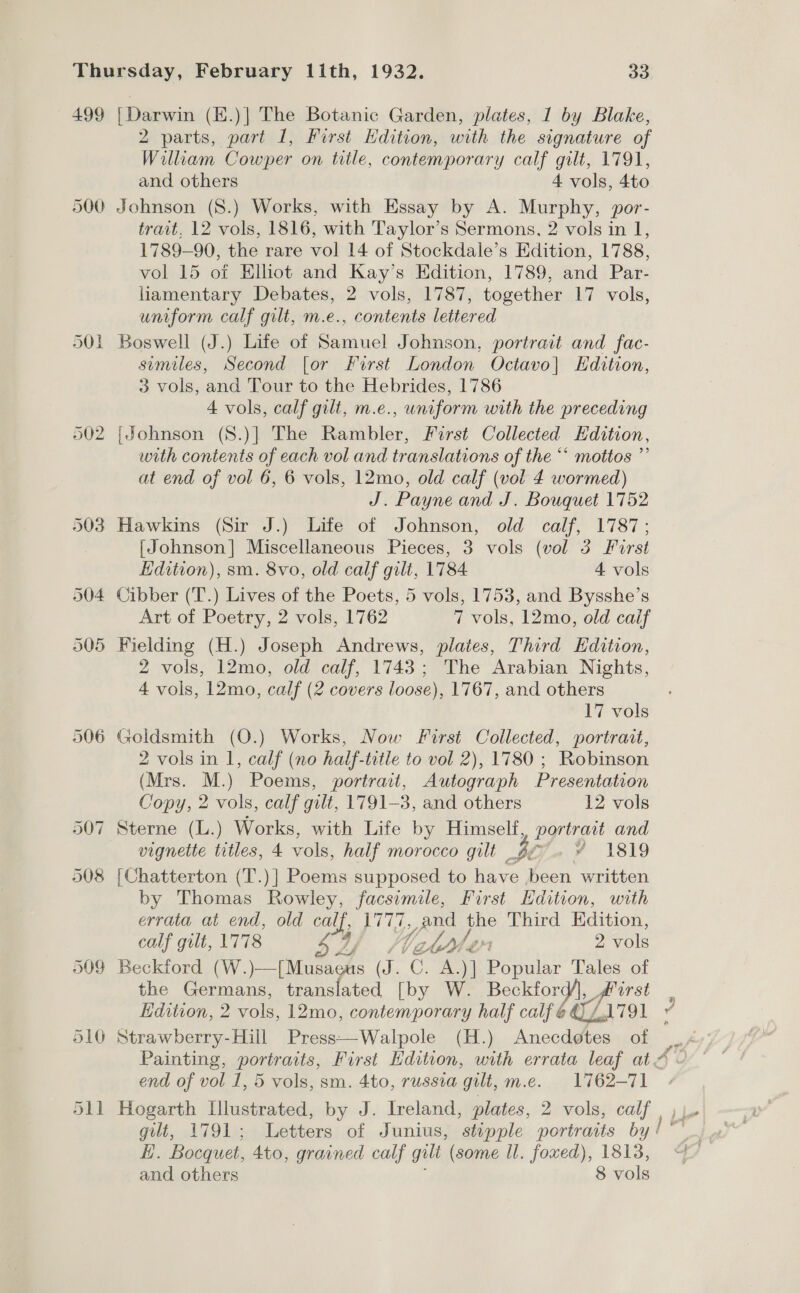 Thursday, February 11th, 1932. 33
499 [Darwin (E.)] The Botanic Garden, plates, 1 by Blake,
2 parts, part 1, First Edition, with the signature of
William Cowper on title, contemporary calf gilt, 1791,
and others 4 vols, 4to
500 Johnson (S.) Works, with Essay by A. Murphy, por-
trait, 12 vols, 1816, with Taylor's Sermons, 2 vols in 1,
1789–90, the rare vol 14 of Stockdale's Edition, 1788,
vol 15 of Elliot and Kay's Edition, 1789, and Par-
liamentary Debates, 2 vols, 1787, together 17 vols,
uniform calf gilt, m.e., contents lettered
501 Boswell (J.) Life of Samuel Johnson, portrait and fac-
similes, Second [or First London Octavo] Edition,
3 vols, and Tour to the Hebrides, 1786
4 vols, calf gilt, m.e., uniform with the preceding
502 [Johnson (S.)] The Rambler, First Collected Edition,
with contents of each vol and translations of the “ mottos ”
at end of vol 6, 6 vols, 12mo, old calf (vol 4 wormed)
J. Payne and J. Bouquet 1752
503 Hawkins (Sir J.) Life of Johnson, old calf, 1787;
[Johnson] Miscellaneous Pieces, 3 vols (vol 3 First
Edition), sm. 8vo, old calf gilt, 1784 4 vols
504 Cibber (T.) Lives of the Poets, 5 vols, 1753, and Bysshe's
Art of Poetry, 2 vols, 1762 7 vols, 12mo, old calf
505 Fielding (H.) Joseph Andrews, plates, Third Edition,
2 vols, 12mo, old calf, 1743; The Arabian Nights,
4 vols, 12mo, calf (2 covers loose), 1767, and others
17 vols
506 Goldsmith (O.) Works, Now First Collected, portrait,
2 vols in 1, calf (no half-title to vol 2), 1780; Robinson
(Mrs. M.) Poems, portrait, Autograph Presentation
Copy, 2 vols, calf gilt, 1791–3, and others 12 vols
507 Sterne (L.) Works, with Life by Himself, portrait and
vignette titles, 4 vols, half morocco gilt 1819
508 [Chatterton (T.)] Poems supposed to have been written
by Thomas Rowley, facsimile, First Edition, with
errata at end, old calf, 1777, and the Third Edition,
calf gilt, 1778 2 vols
509 Beckford (W.)—[Musaeus (J. C. A.)] Popular Tales of
the Germans, translated [by W. Beckford], First
Edition, 2 vols, 12mo, contemporary half calf 1791
510 Strawberry-Hill Press—Walpole (H.) Anecdotes of
Painting, portraits, First Edition, with errata leaf at
end of vol 1, 5 vols, sm. 4to, russia gilt, m.e. 1762–71
511 Hogarth Illustrated, by J. Ireland, plates, 2 vols, calf
gilt, 1791; Letters of Junius, stipple portraits by
E. Bocquet, 4to, grained calf gilt (some ll. foxed), 1813,
and others 8 vols